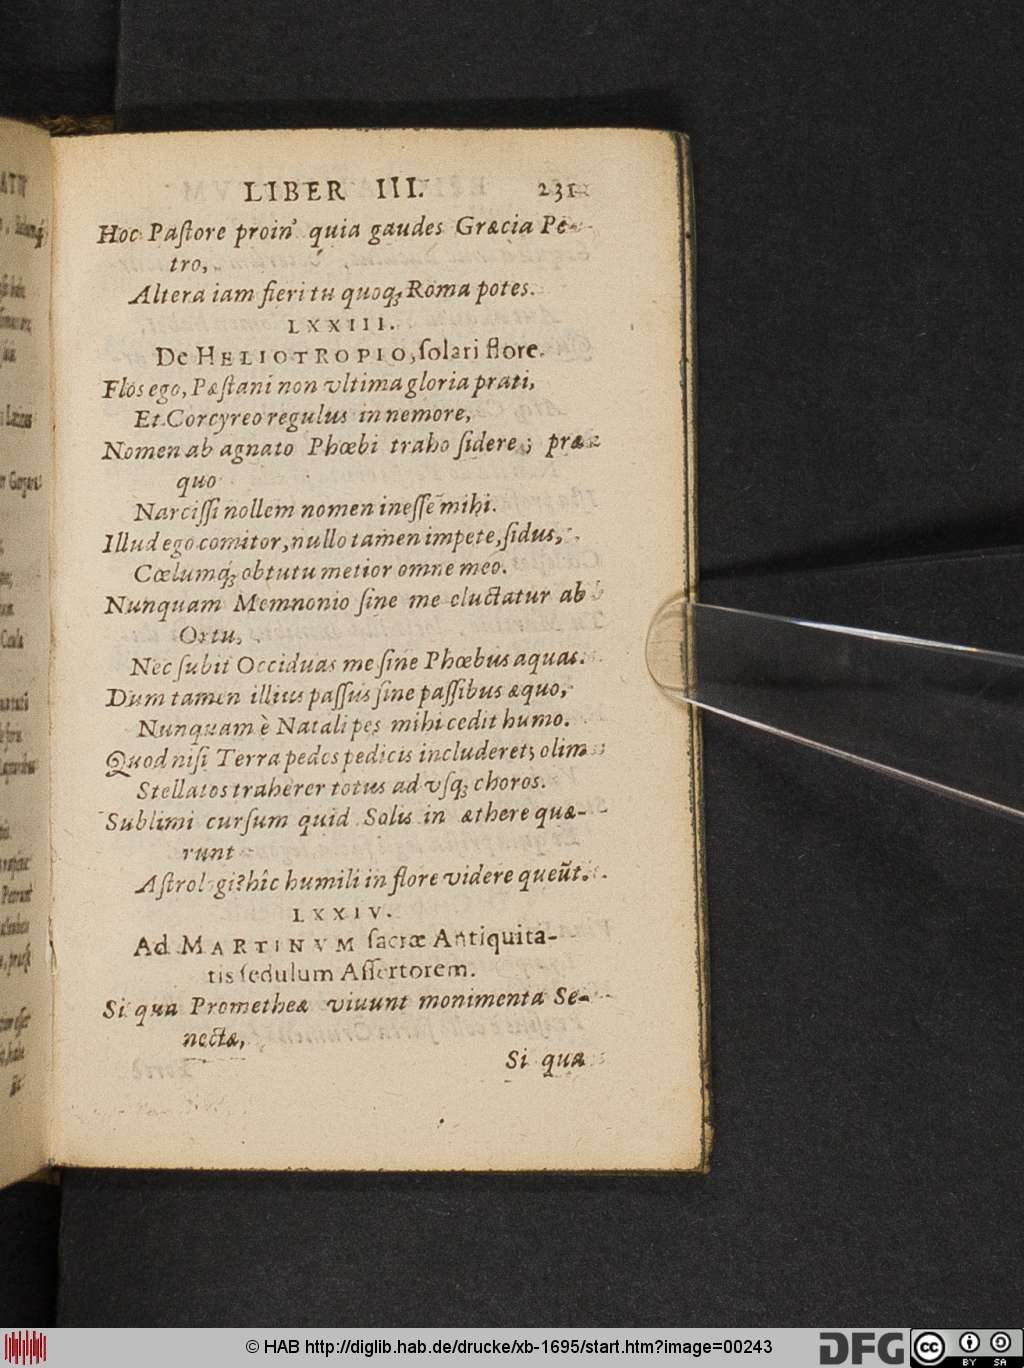 LIBER III. 231
Hoc Paſtore proin' quia gaudes Græcia Pe-
tro,
Altera iam fieri tu quoq; Roma potes.
LXXIII.
De HELIOTROPIO, ſolari flore.
Flos ego, Pæſtani non vltima gloria prati,
Et Corcyreo regulus in nemore,
Nomen ab agnato Phœbi traho ſidere; præ
quo
Narciſſi nollem nomen ineſſe mihi.
Illud ego comitor, nullo tamen impete, ſidus,
Cœlumq; obtutu metior omne meo.
Nunquam Memnonio ſine me eluctatur ab
Ortu,
Nec ſubit Occiduas me ſine Phœbus aquas.
Dum tamen illius paſſus ſine paſſibus æquo,
Nunquam è Natali pes mihi cedit humo.
Quod niſi Terra pedes pedicis includeret; olim
Stellatos traherer totus ad vſq; choros.
Sublimi curſum quid Solis in æthere quæ-
runt
Aſtrologi? hîc humili in flore videre queũt.
LXXIV.
Ad MARTINVM ſacræ Antiquita-
tis ſedulum Aſſertorem.
Si qua Prometheæ viuunt monimenta Se-
nectæ,
Si qua
© HAB http://diglib.hab.de/drucke/xb-1695/start.htm?image=00243
DFG
cc
BY SA